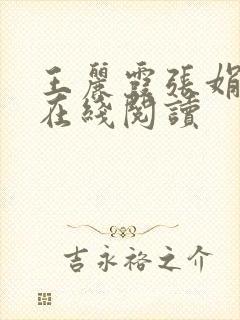 王麗霞張娟
在綫閱讀
吉永裕之介